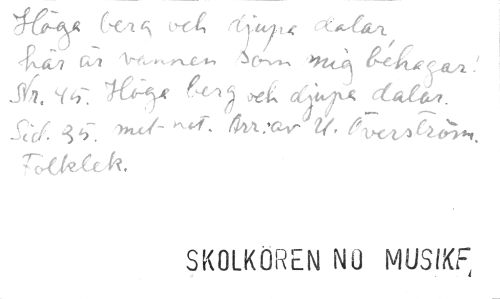 Höga berg och djupa dalar,
här är vännen som mig behagar!
Nr. 45. Höga berg och djupa dalar.
Sid. 35. mel-not. Arr: av U. Överström.
Folklek.
SKOLKÖREN NO MUSIKF,